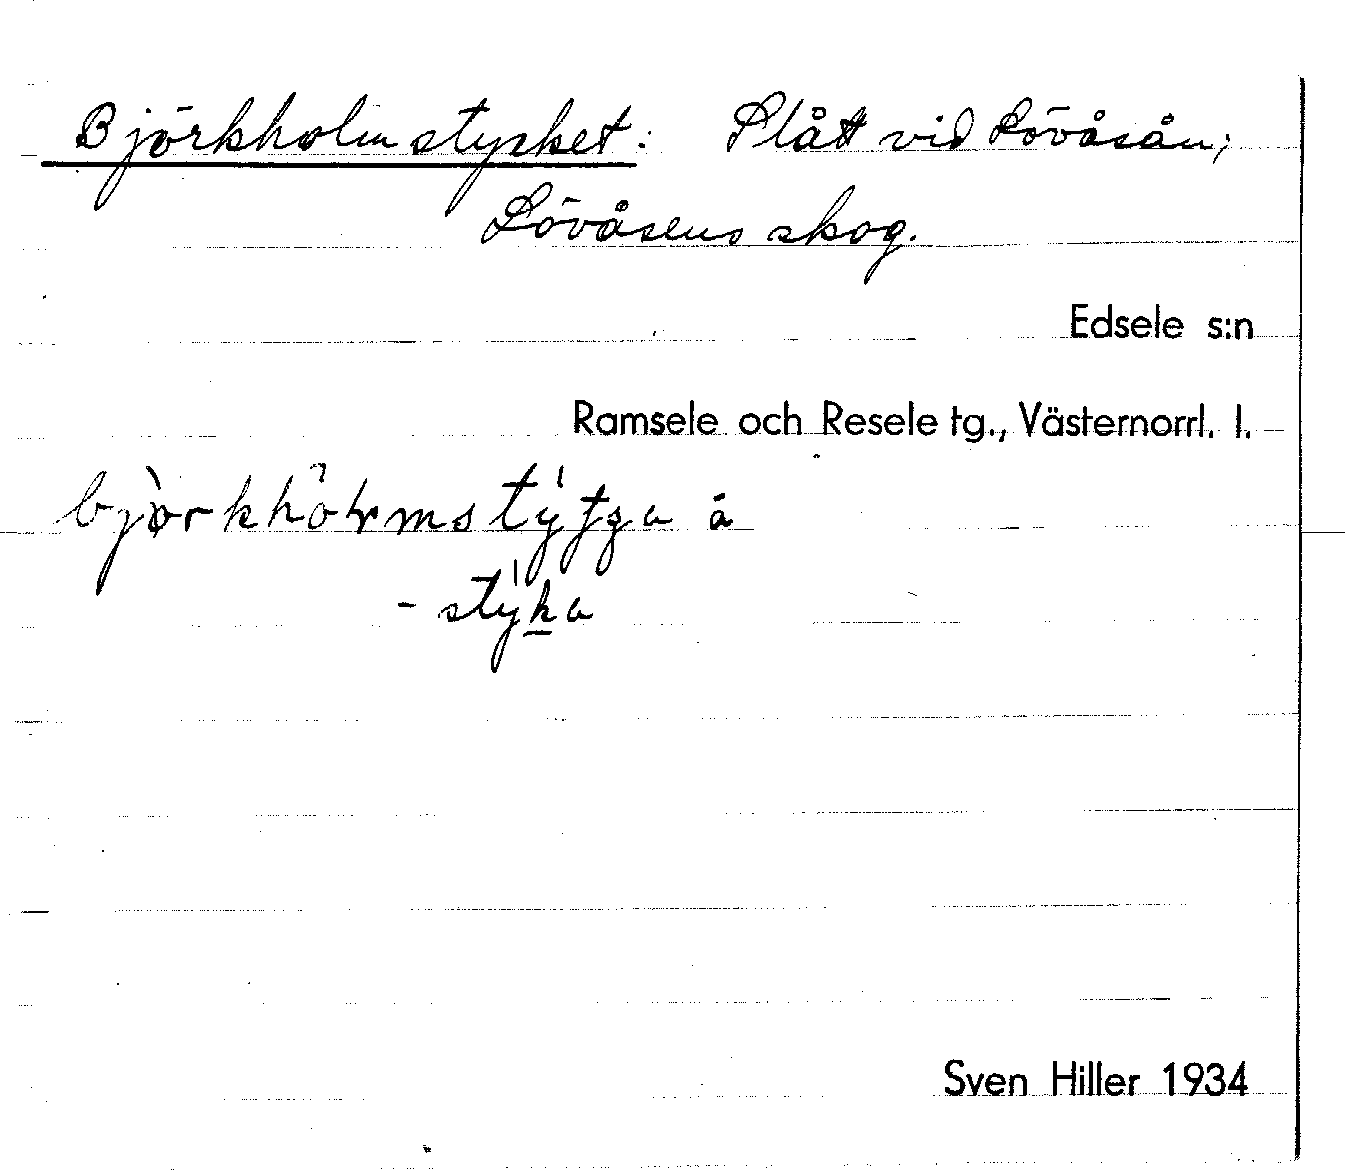 Björkholmstycket: Slått vid Lövåsån;
Lövåsens skog.
Edsele s:n
Ramsele och Resele tg., Västernorrl. l.
- stýka
Sven Hiller 1934